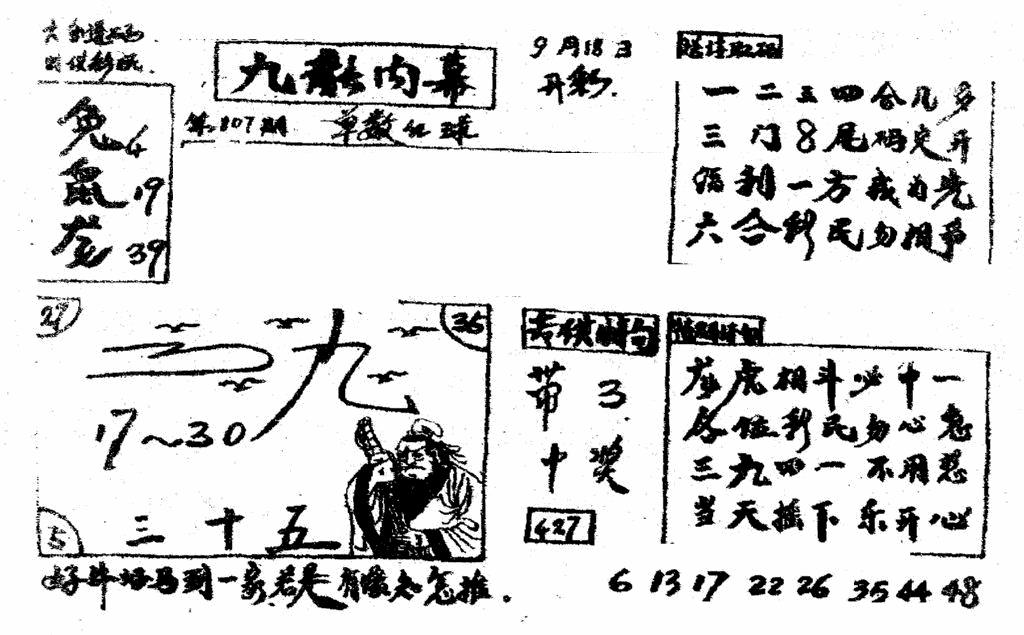 九龙内幕
9月18日
开彩.
第807期 单数红球
兔 4
鼠 19
龙 39
一二三四合几多
三门8尾码定开
一方我为先
六合彩民勿相争
27
36
二九
17~30
5
三十五
专供特句
带3
中奖
427
龙虎相斗必中一
各位彩民勿心急
三九四一不用愁
当天摇下乐开心
好牛好马到一家若是有缘知怎推.
6 13 17 22 26 35 44 48